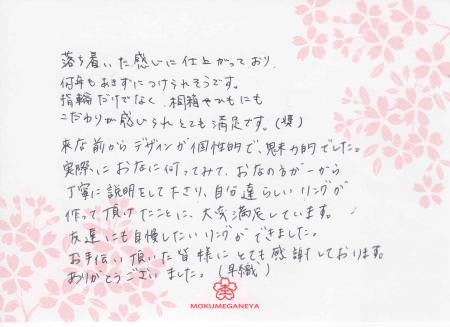 落ち着いた感じに仕上がっており、
何年もあきずにつけられそうです。
指輪だけでなく、桐箱やひもにも
こだわりが感じられとても満足です。
来る前からデザインが個性的で、魅力的でした。
実際に お店に伺ってみて、お店の方が一から
丁寧に説明をして下さり、自分達らしいリングが
作って頂けたことに、大変満足しています。
友達にも自慢したいリングができました。
お手伝い頂いた皆様にとても感謝しております。
ありがとうございました。
MOKUMEGANEYA